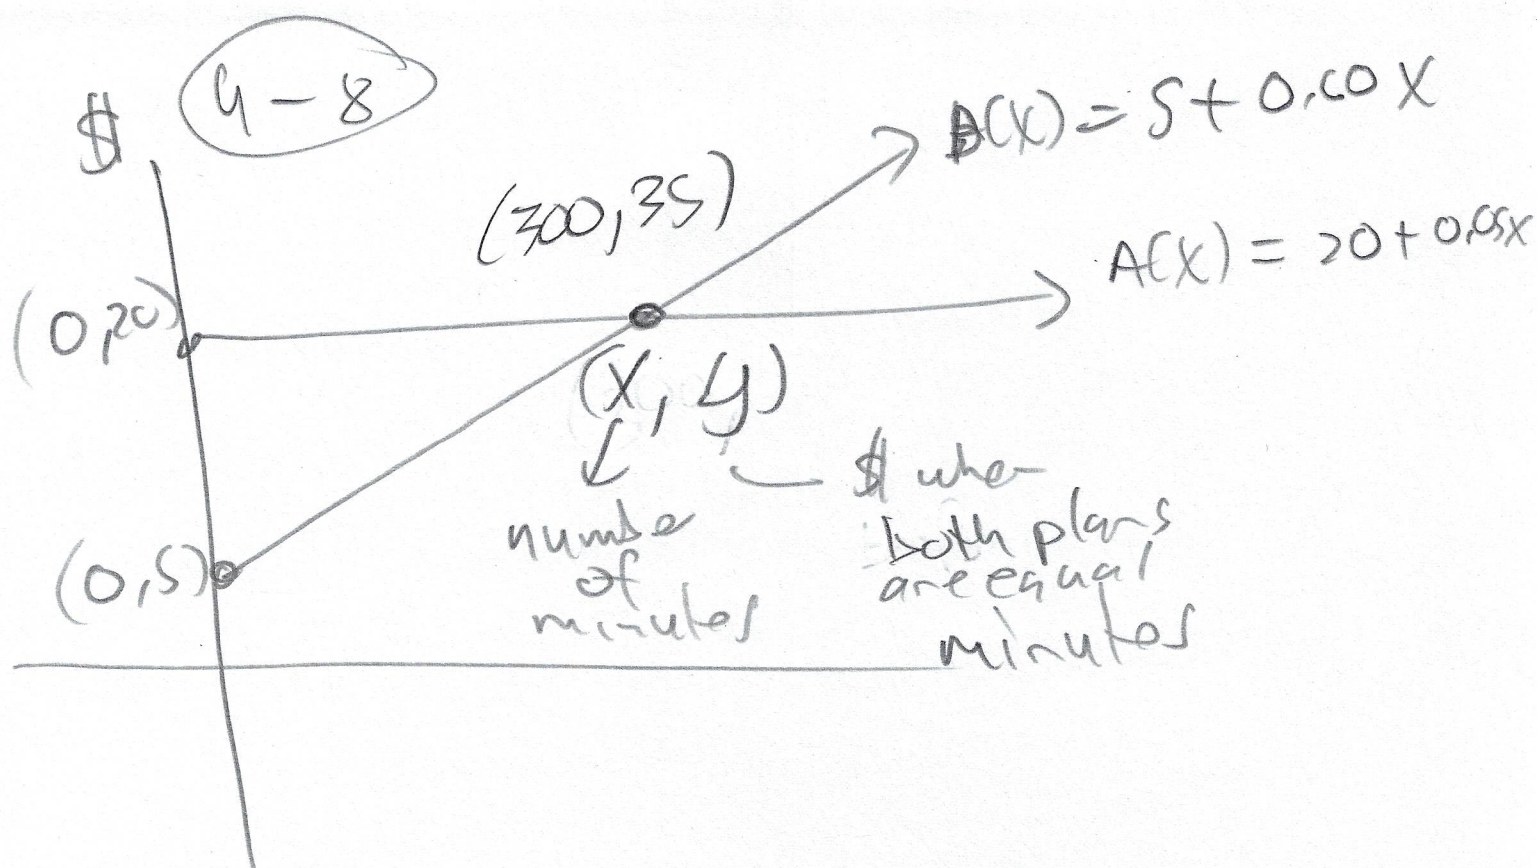 4-8
$
B(X) = 5 + 0.10 X
(300,35)
A(X) = 20 + 0.05X
(0,20)
(X, y)
$ when
both plans
are equal
minutes
number
of
minutes
(0,5)